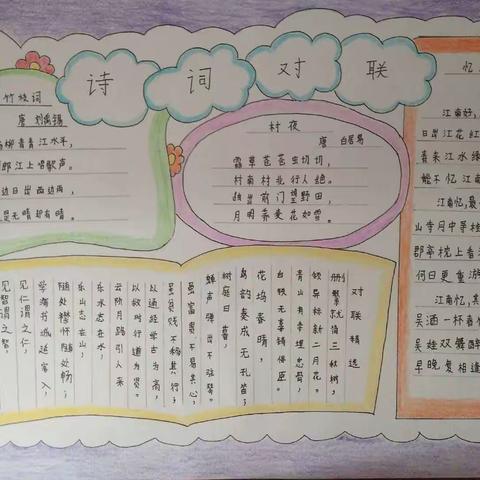 诗词对联
竹枝词
唐 刘禹锡
杨柳青青江水平,
郎江上唱歌声。
边日出西边雨,
是无晴却有晴。
村夜
唐 白居易
霜草苍苍虫切切,
村南村北行人绝。
独出前门望野田,
月明荞麦花如雪。
忆
江南好,
日出江花红
春来江水绿
能不忆江南
江南忆,最
山寺月中寻桂
郡亭枕上看
何日更重游
江南忆,其
吴酒一杯春
吴娃双舞醉
早晚复相逢
对联精选
删繁就简三秋树,
领异标新二月花。
青山有幸埋忠骨,
白铁无辜铸佞臣。
花坞春晴,
鸟韵奏成无孔笛;
树庭日暮,
蝉声弹出不弦琴。
虽富贵不易其心,
虽贫贱不移其行;
以通经学古为高,
以救时行道为贤。
云阶月路引人来
乐水志在水,
乐山志在山;
随处襟怀随处畅;
学海书城延客入,
见仁谓之仁,
见智谓之智,